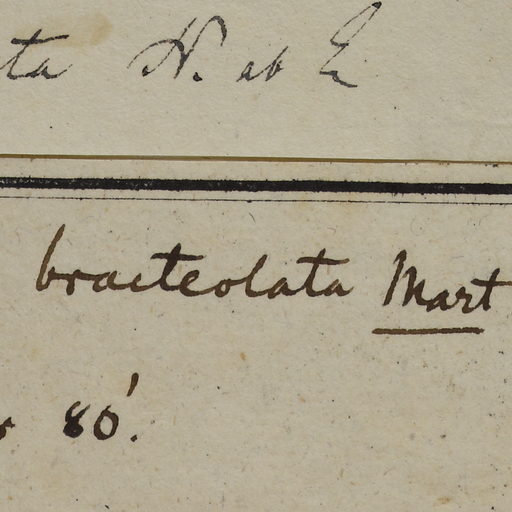 ta N. ab E
bracteolata Mart
80'.